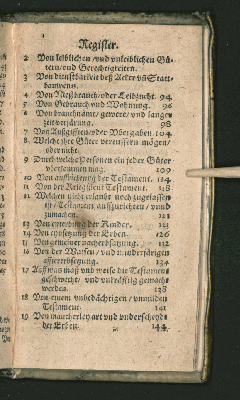 Register.
2 Von leiblichen/und unleiblichen Gü-
tern/und Gerechtigkeiten.
3 Von dienstbarkeit deß Acker uñ Statt-
bauwens.
4 Von Nießbrauch/oder Leibzucht. 94.
5 Von Gebrauch und Wohnung. 96
6 Von brauchnamt/gewere/und lang-
zeit verjärung. 98
7 Von Außgifften/oder Vbergaben. 104.
8 Welche ihre Güter vereussern mögen/
oder nicht.
9 Durch welche Personen ein jeder Güter
109
10 Von auffrichtung der Testament. 114.
11 Von der Kriegsleut Testament. 118
12 Welchen nicht erlaubt noch zugelassen
ist/Testament auffzurichten/und
zumachen. 121
13 Von enterbung der Kinder. 123
14 Von einsetzung der Erben. 126
15 Von gemeiner nacherbsatzung. 132
16 Von der Waisen/und minderjärigen
affterersetzung. 134
17 Auff was maß und weise die Testament
geschwecht/und unkräfftig gemacht
werden. 138
18 Von einem unbedächtigen/unmilden
Testament. 141
19 Von mancherley art und underscheyde
der Erben. 144.